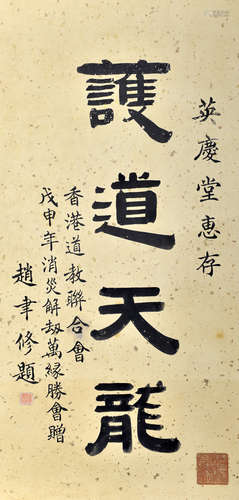 英慶堂惠存
護道天龍
香港道教聯合會
戊申年消災解劫萬緣勝會贈
趙聿修題